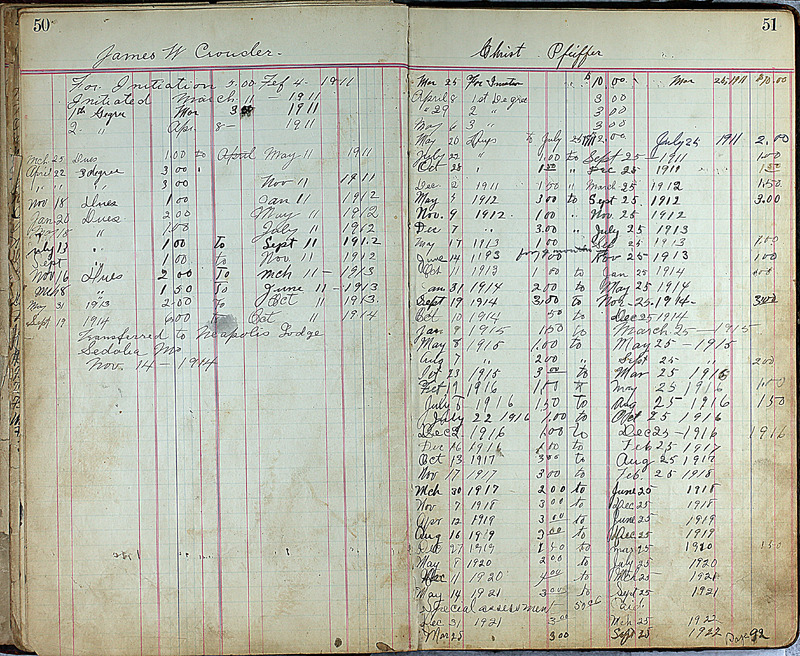 50
James W Crouder.
For Initiation 5.00 Feb 4 - 1911
Initiated March 11 - 1911
1st Degree Mar 1911
2 " Apr 8 - 1911
Mch 25 Dues 1.00 to April May 11 1911
April 22 3 degree 3 00 "
" " " 3.00 Nov 11 1911
Nov 18 Dues 1.00 Jan 11 1912
Jan 20 Dues 2.00 May 11 1912
18 " 1.00 July 11 1912
July 13 " 1 00 to Sept 11 1912
Sept " 1 00 to Nov. 11 1912
Nov 16 Dues 2 00 To Mch 11 - 1913
Mc 8 1 50 To June 11 - 1913
May 31 1913 2.00 to Oct 11 1913.
Sept 19 1914 6.00 to Oct 11 1914
Transferred to Neapolis Lodge
Sedalia Mo
Nov. 14 - 1914
51
Christ Pfeiffer
Mar 25 For $10 00. Mar 25 1911 $10.00
April 8 1st Degree 3 00
" 29 2 " 3 00
May 6 3 " 3 00
May 20 Dues to July 25 2.00 July 25 1911 2.00
July 22 " 1.00 to Sept 25 - 1911 1.00
Oct 28 " 1.50 " Dec 25 1911
Dec 2 1911 1.50 " March 25 1912 1.50
May 4 1912 3 00 to Sept 25. 1912 3.00
Nov. 9 1912. 1.00 " Nov. 25 1912
Dec 7 " 3.00 " July 25 1913
May 17 1913 1.00 " Sep 25 1913 1.00
June 14 1193 for months Nov 25 - 1913 1 00
Oct 11 1913 1 00 to Jan 25 1914
Jan 31 1914 2.00 to May 25 1914
Sept 19 1914 3.00 to Nov. 25 - 1914 - 3.00
Oct 10 1914 50 to Dec 25 1914
Jan 9 1915 1.50 to March 25 - 1915
May 8 1915 1.00 to May 25 - 1915
Aug 7 " 2 00 " Sept 25 " 2 00
Oct 23 1915 3 00 to Mar 25 1916
Feb 19 1916 1 00 to May 25 1916
July 8 1916 1 50 to Aug 25 1916 1 50
July 22 1916 1.00 to Oct 25 1916
Dec 2 1916 1.00 to Dec 25 - 1916 1916
Dec 16 1916 1 00 to Feb 25 - 1917
Oct 13 1917 3 00 to Aug 25 1917
Nov 17 1917 3 00 to Feb. 25 1918
Mch 30 1917 2 00 to June 25 1918
Nov 7 1918 3 00 to Dec 25 1918
Apr 12 1919 3 00 to June 25 1919
Aug 16 1919 3 00 to Dec 25 1919
27 1919 1 50 to Mar 25 1920 1 50
May 8 1920 2 00 to July 25 1920
Dec 11 1920 4 00 to Mch 25 1921
May 14 1921 3 00 to Sept 25 1921
Special assessment 50cts Paid.
Dec 31 1921 3 00 Mch 25 1922
Mar 25 3 00 Sept 25 1922 Page 92